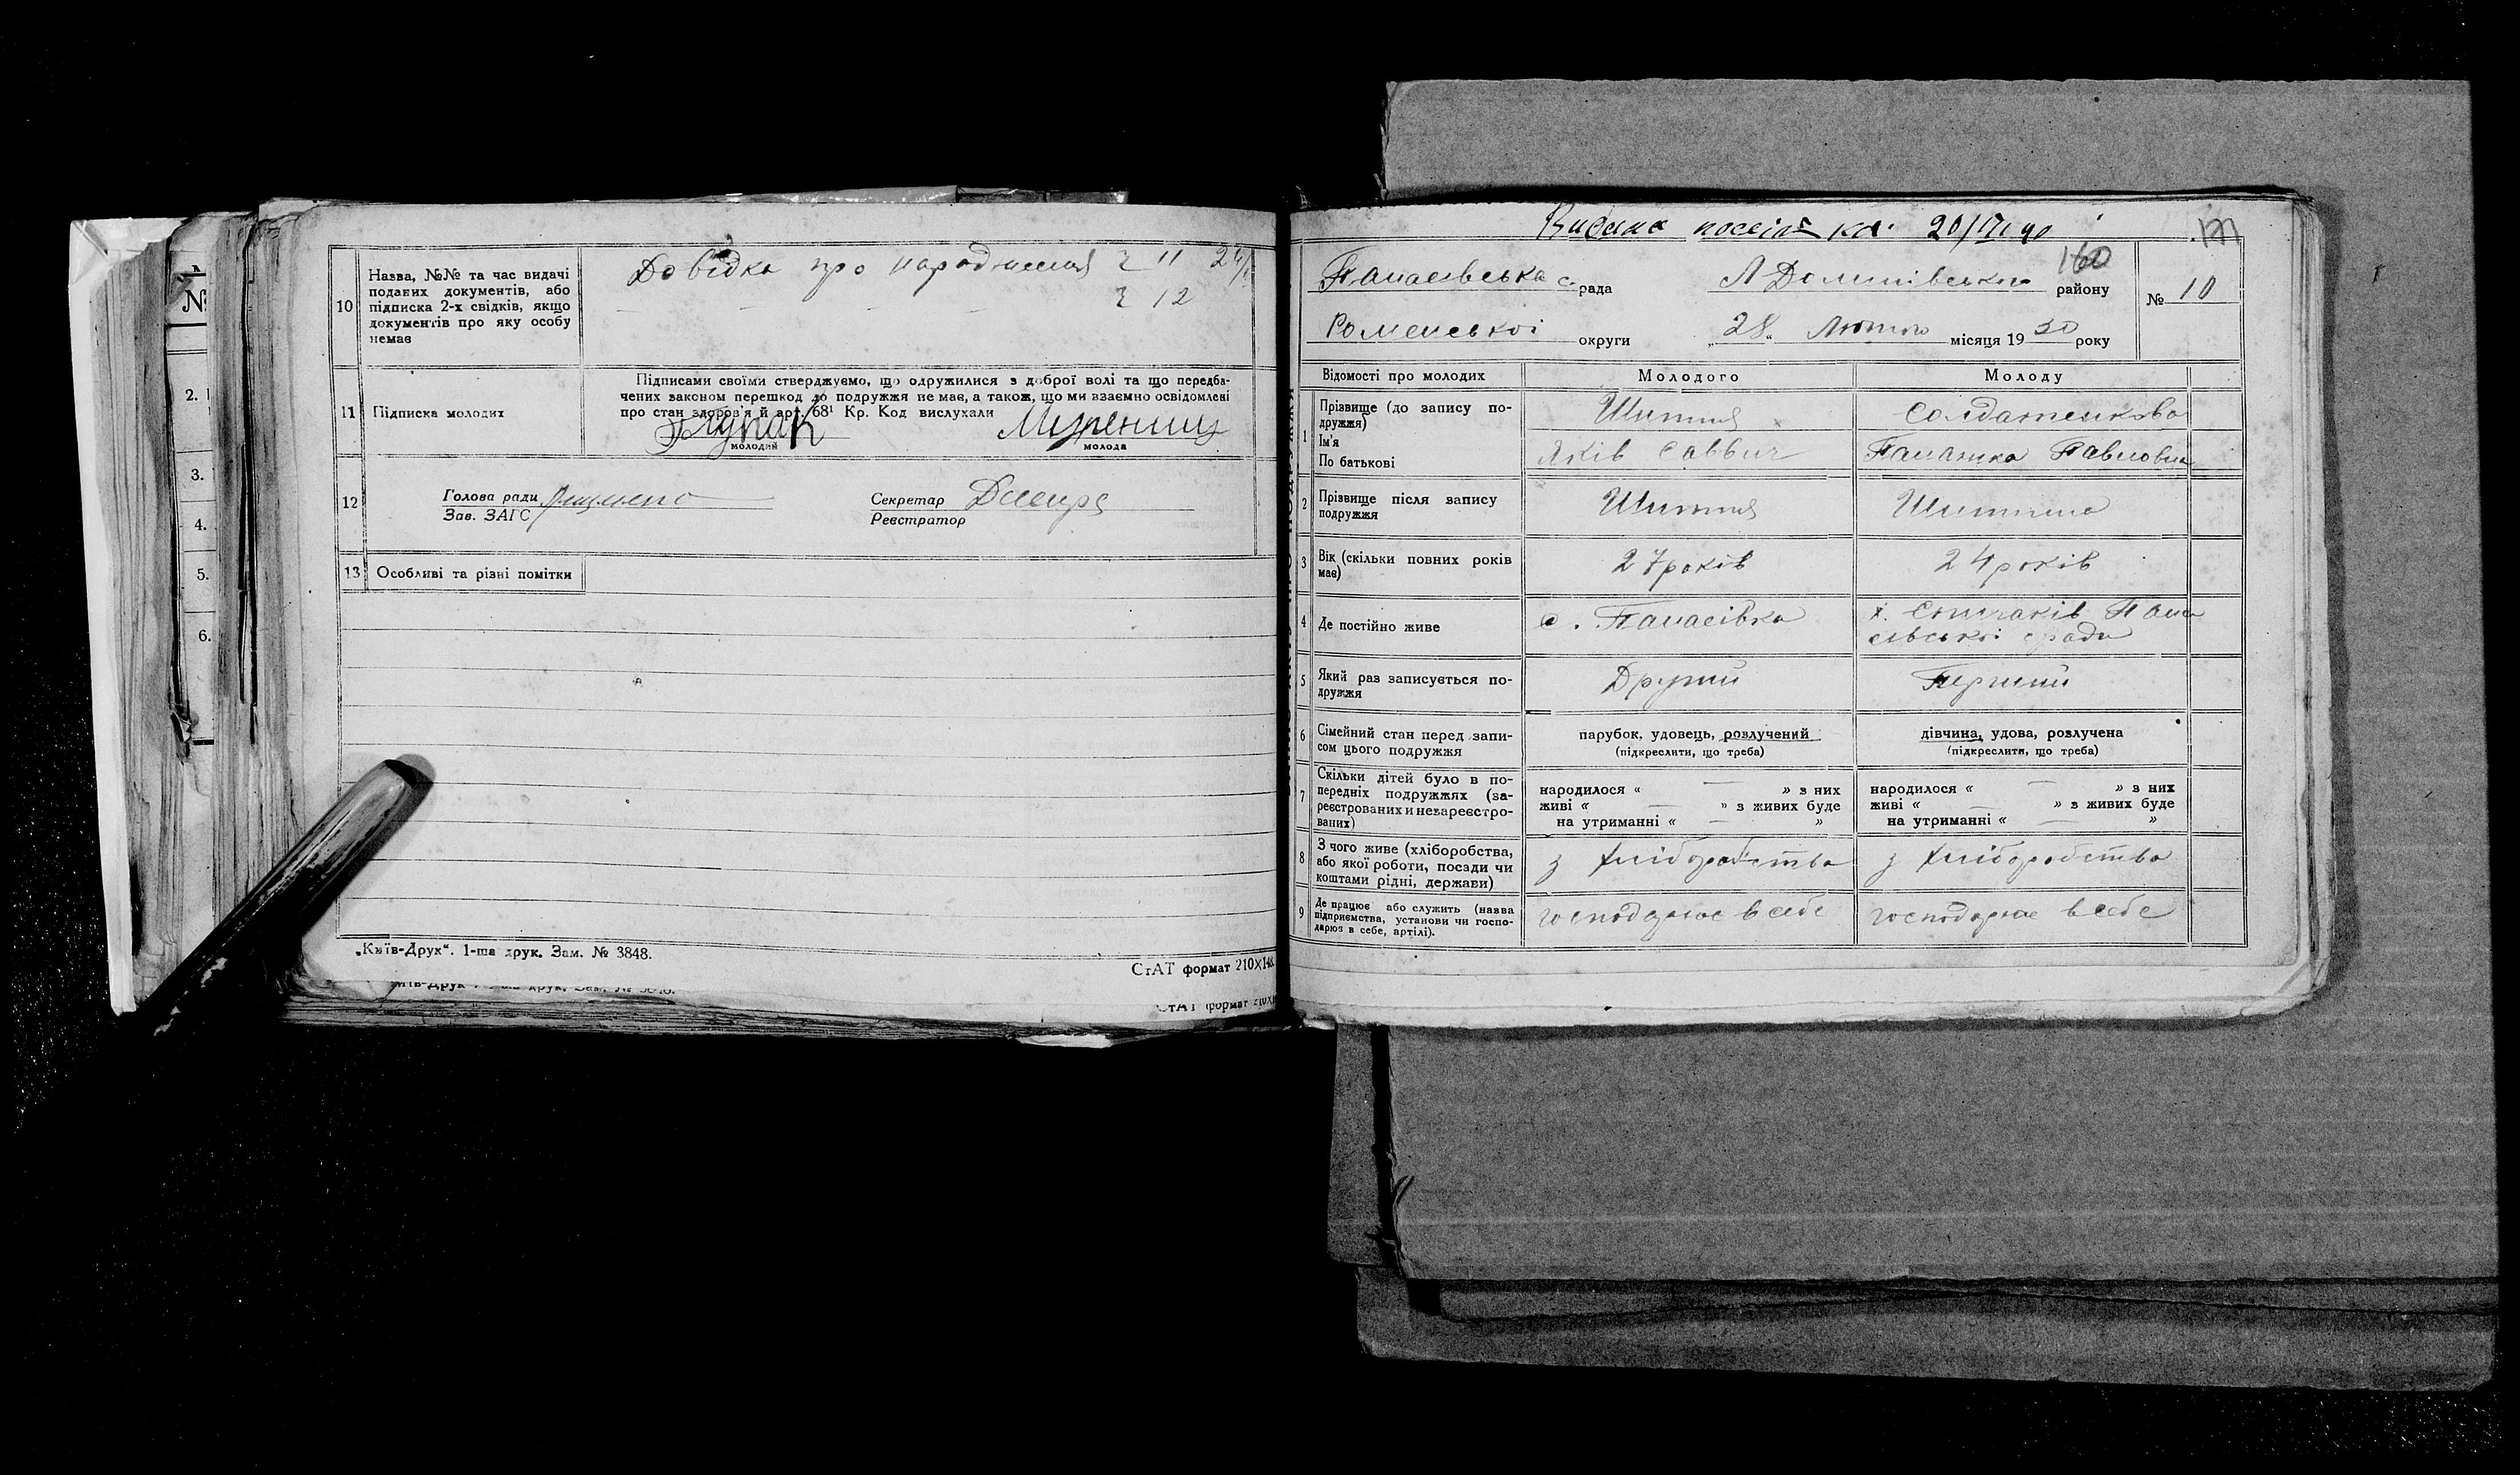 10
Назва, №№ та час видачі
поданих документів, або
підписка 2-х свідків, якщо
документів про яку особу
немає
Довідка про народження № 11 24/I
№ 12
11
Підписка молодих
Підписами своїми стверджуємо, що одружилися з доброї волі та що передба-
чених законом перешкод до подружжя не має, а також, що ми взаємно освідомлені
про стан здоров'я й арт. 68¹ Кр. Код вислухали
молодий
молода
12
Голова ради
Зав. ЗАГС
Секретар
Реєстратор
13
Особливі та різні помітки
„Київ-Друк“. 1-ша друк. Зам. № 3848.
СтАТ формат 210X148
№
2.
3.
4.
5.
6.
Видана 20/IV 40
171
160
Панасівська с. рада Л Долинівського району
№ 10
Роменської округи „28“ Лютого місяця 1930 року
Відомості про молодих
Молодого
Молоду
1
Прізвище (до запису по-
дружжя)
Ім'я
По батькові
Шитик
Яків Саввич
Солдатенкова
Павловна
2
Прізвище після запису
подружжя
3
Вік (скільки повних років
має)
27 років
24 років
4
Де постійно живе
с. Панасівка
х. Спичаків Пана
сівської с ради
5
Який раз записується по-
дружжя
Другий
Перший
6
Сімейний стан перед запи-
сом цього подружжя
парубок, удовець, розлучений
(підкреслити, що треба)
дівчина, удова, розлучена
(підкреслити, що треба)
7
Скільки дітей було в по-
передніх подружжях (за-
реєстрованих и незареєстро-
ваних)
народилося « — » з них
живі « — » з живих буде
на утриманні « — »
народилося « — » з них
живі « — » з живих буде
на утриманні « — »
8
З чого живе (хліборобства,
або якої роботи, посади чи
коштами рідні, держави)
з хліборобства
з хліборобства
9
Де працює або служить (назва
підприємства, установи чи госпо-
дарює в себе, артілі).
господарює в себе
господарює в себе